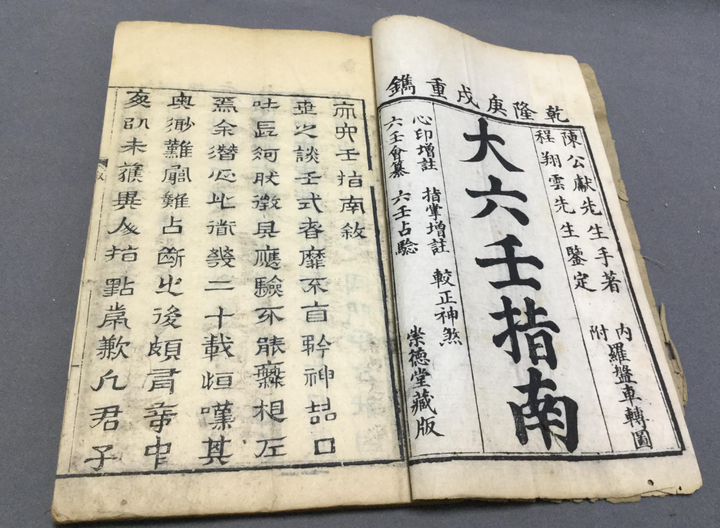 乾隆庚戌重鐫
陳公獻先生手著
程翔雲先生鑒定
內羅盤車轉圖
附
大六壬指南
心印增註 指掌增註 較正神煞
六壬會纂 六壬占驗
崇德堂藏版
六壬指南敘
世之談壬式者靡不自矜神喆口
吐長河狀徵具應驗不能無相左
焉余潛心此道幾二十載恒嘆其
奧渺難闚雖占斷之後頗有奇中
未獲異人指點常歉凡君子